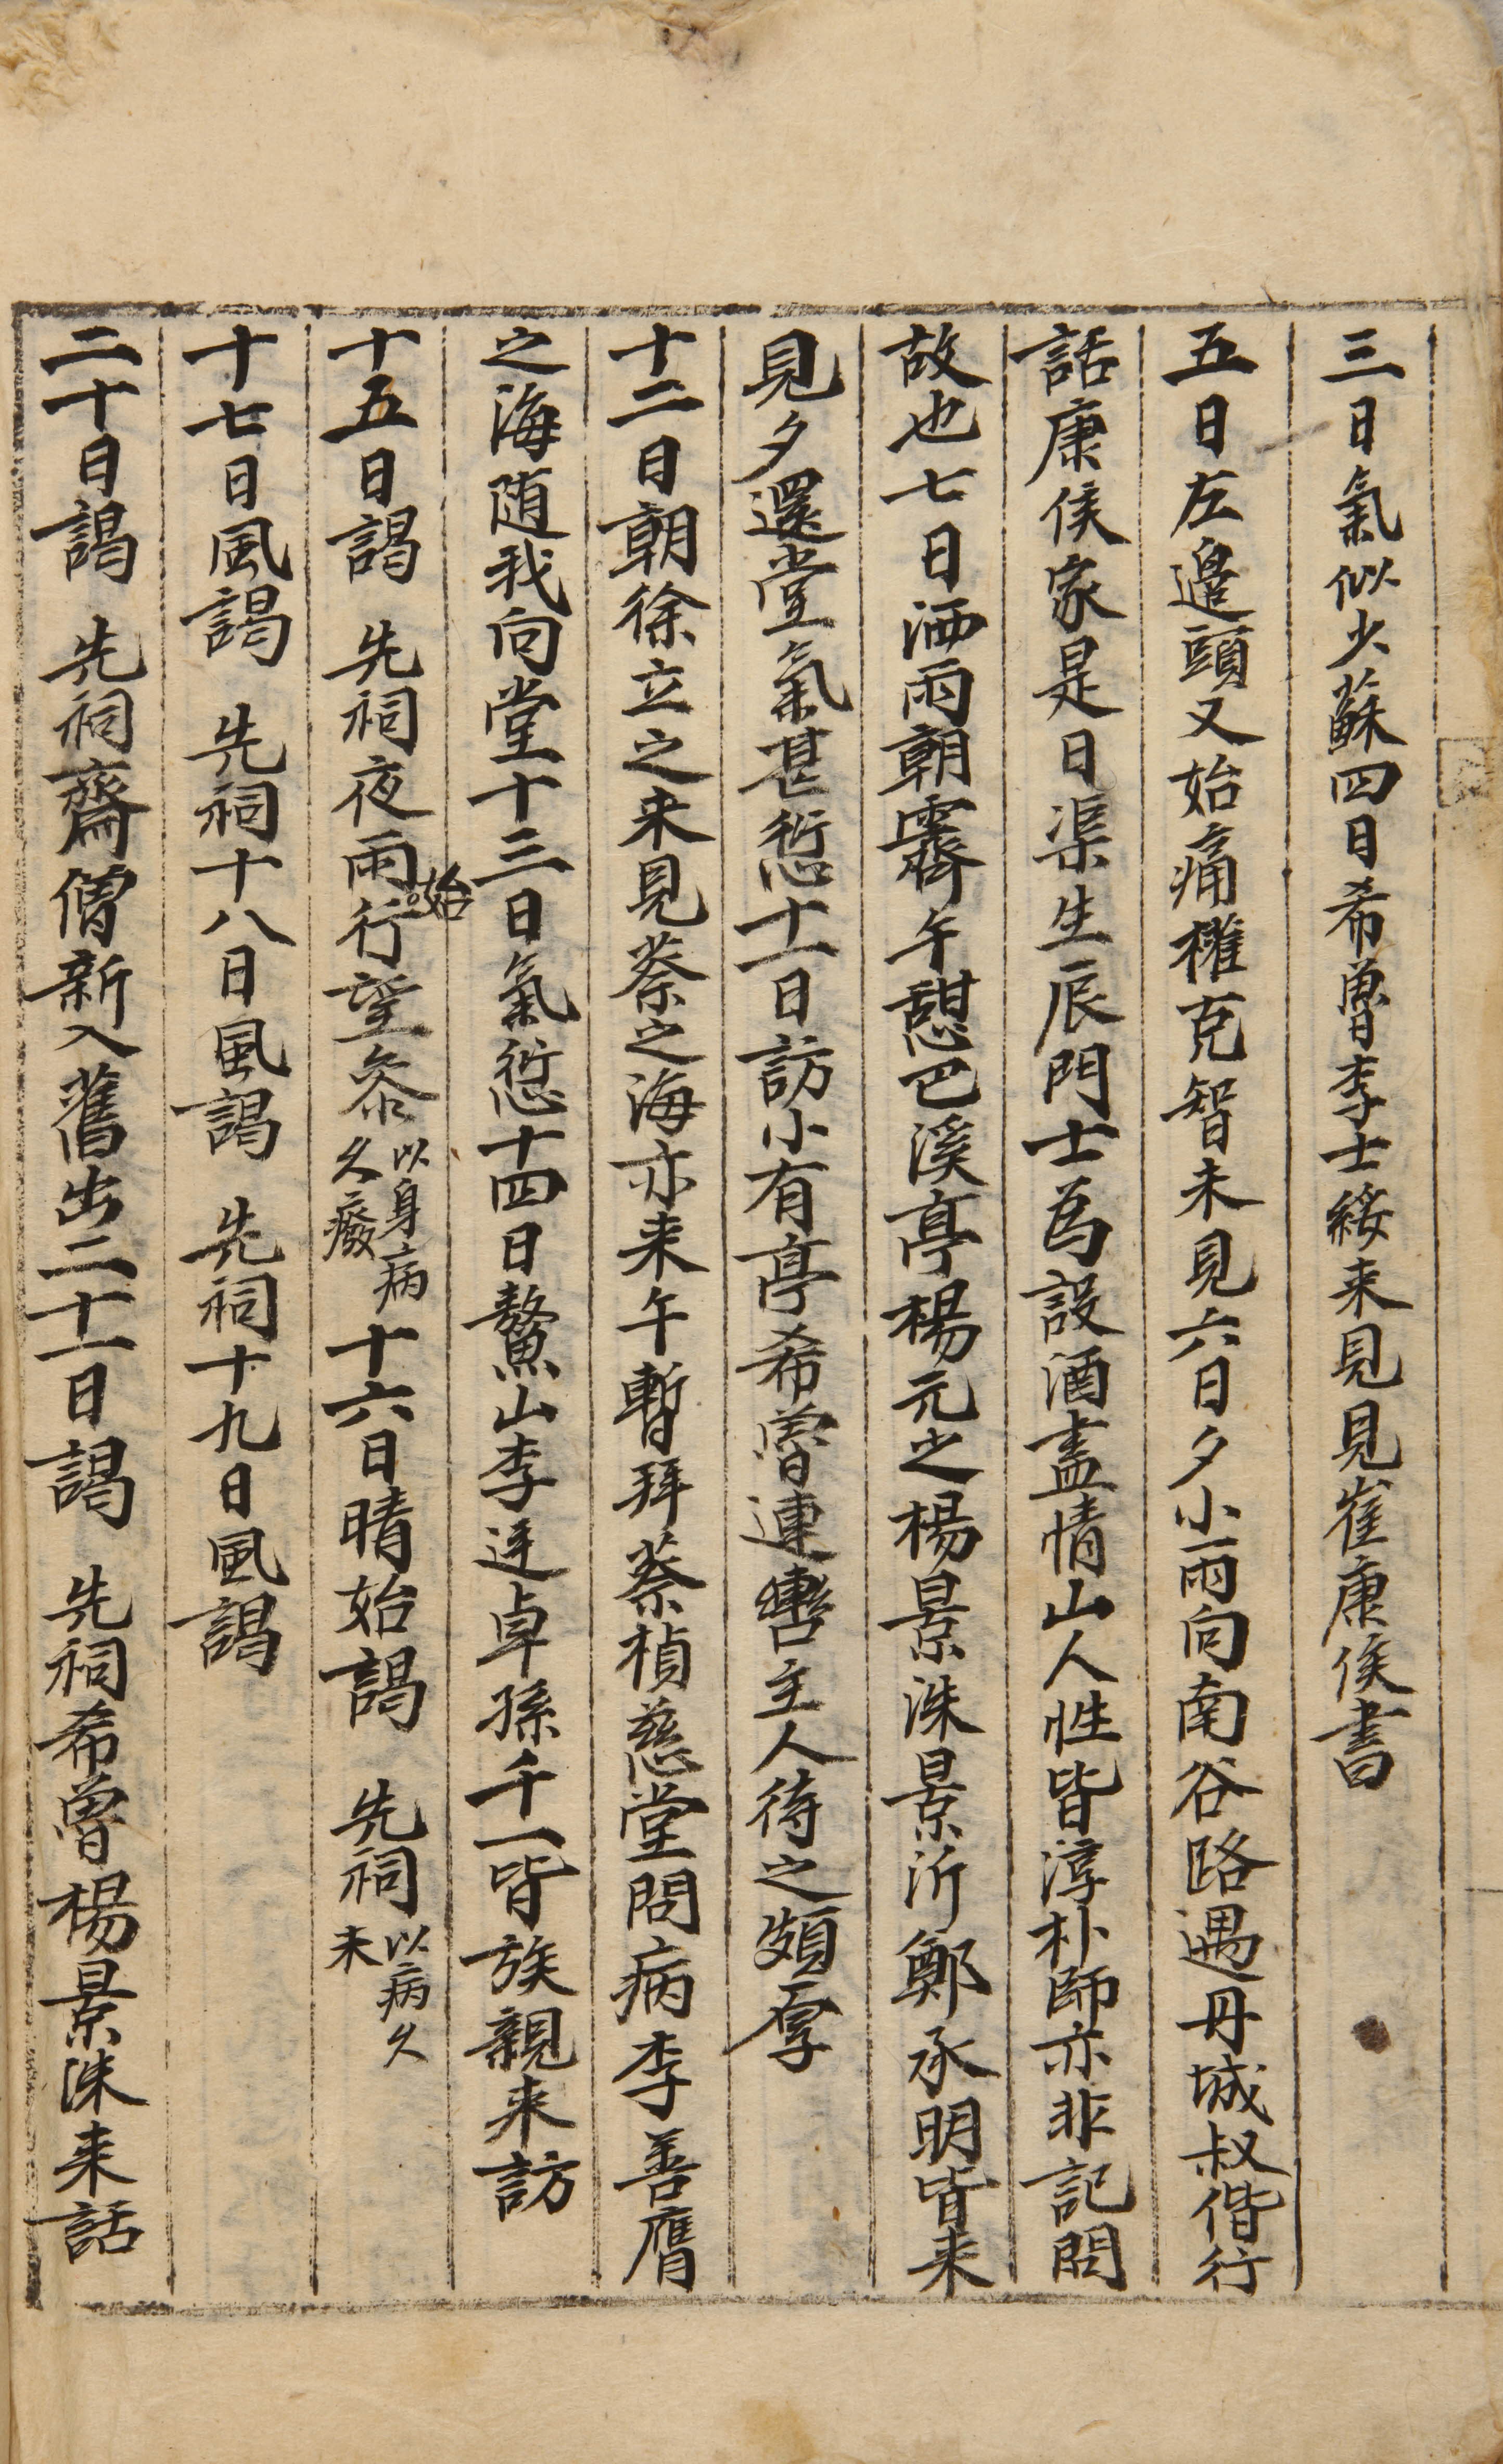 三日氣似少蘇四日希曾李士綏来見見崔康侯書
五日左邉頭又始痛權克智未見六日夕小雨向南谷路遇丹城叔偕行
話康侯家是日渠生辰門士爲設酒盡情山人性皆淳朴師亦非記問
故也七日洒雨朝霽午憩巴溪亭楊元之楊景洙景沂鄭承明皆来
見夕還堂氣甚愆十一日訪小有亭希曾連轡主人待之頗厚
十二日朝徐立之来見蔡之海亦来午暫拜蔡楨慈堂問病李善膺
之海随我向堂十三日氣愆十四日鰲山李廷卓孫千一皆族親来訪
十五日謁 先祠夜雨始行望叅以身病久癈十六日晴始謁 先祠以病久未
十七日風謁 先祠十八日風謁 先祠十九日風謁
二十日謁 先祠齋僧新入舊出二十一日謁 先祠希曾楊景洙来話